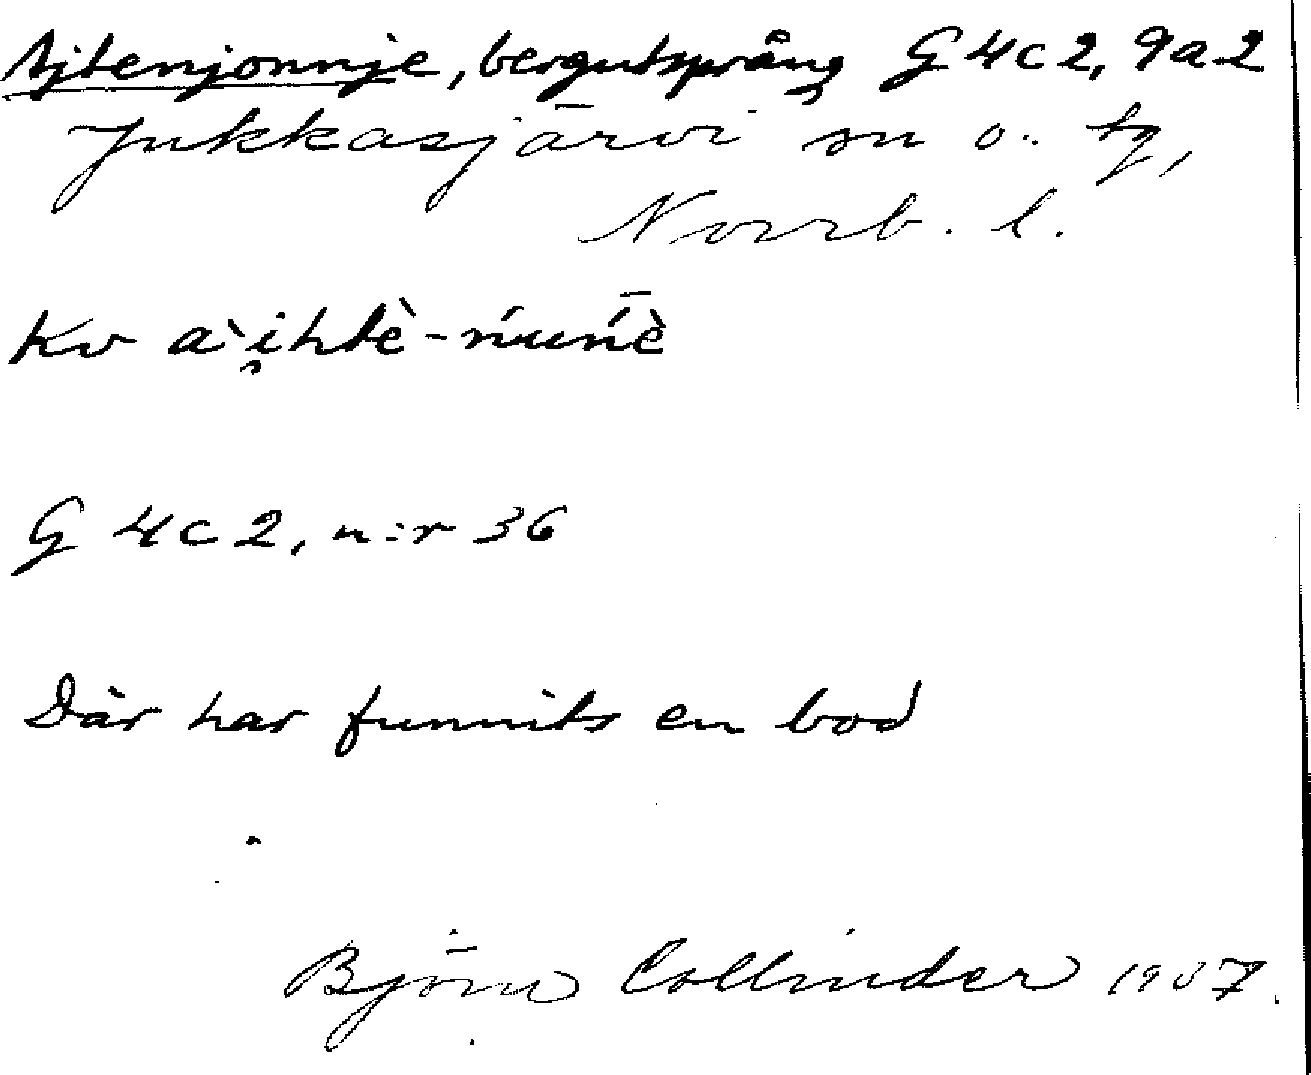 Ajtenjonnje, bergutsprång G 4c2, 9a2
Jukkasjärvi sn o. tg,
Norrb. l.
Kv
G 4c2, n:r 36
Där har funnits en bod
Björn Collinder 1907.